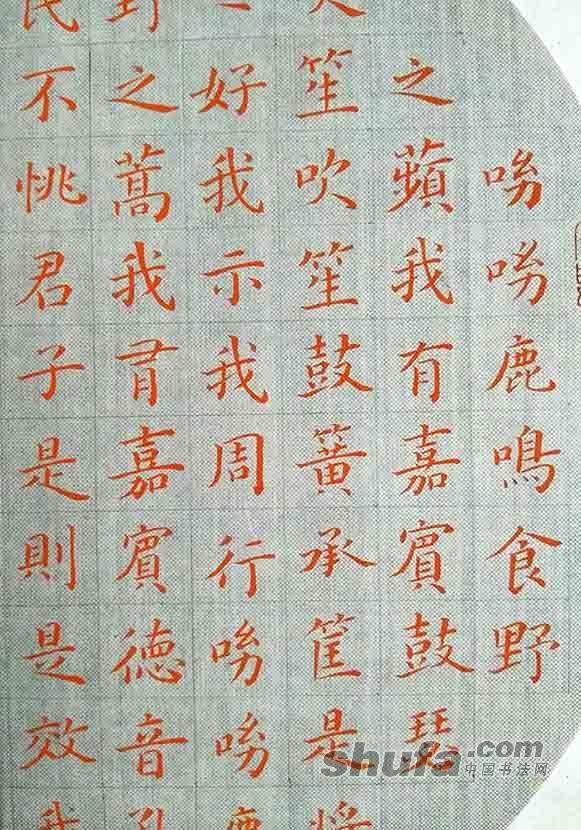 呦呦鹿鳴食野
之蘋我有嘉賓鼓瑟
吹笙吹笙鼓簧承筐是將
之好我示我周行呦呦鹿
野之蒿我有嘉賓德音孔
民不恌君子是則是效我
shufa.com
中国书法网